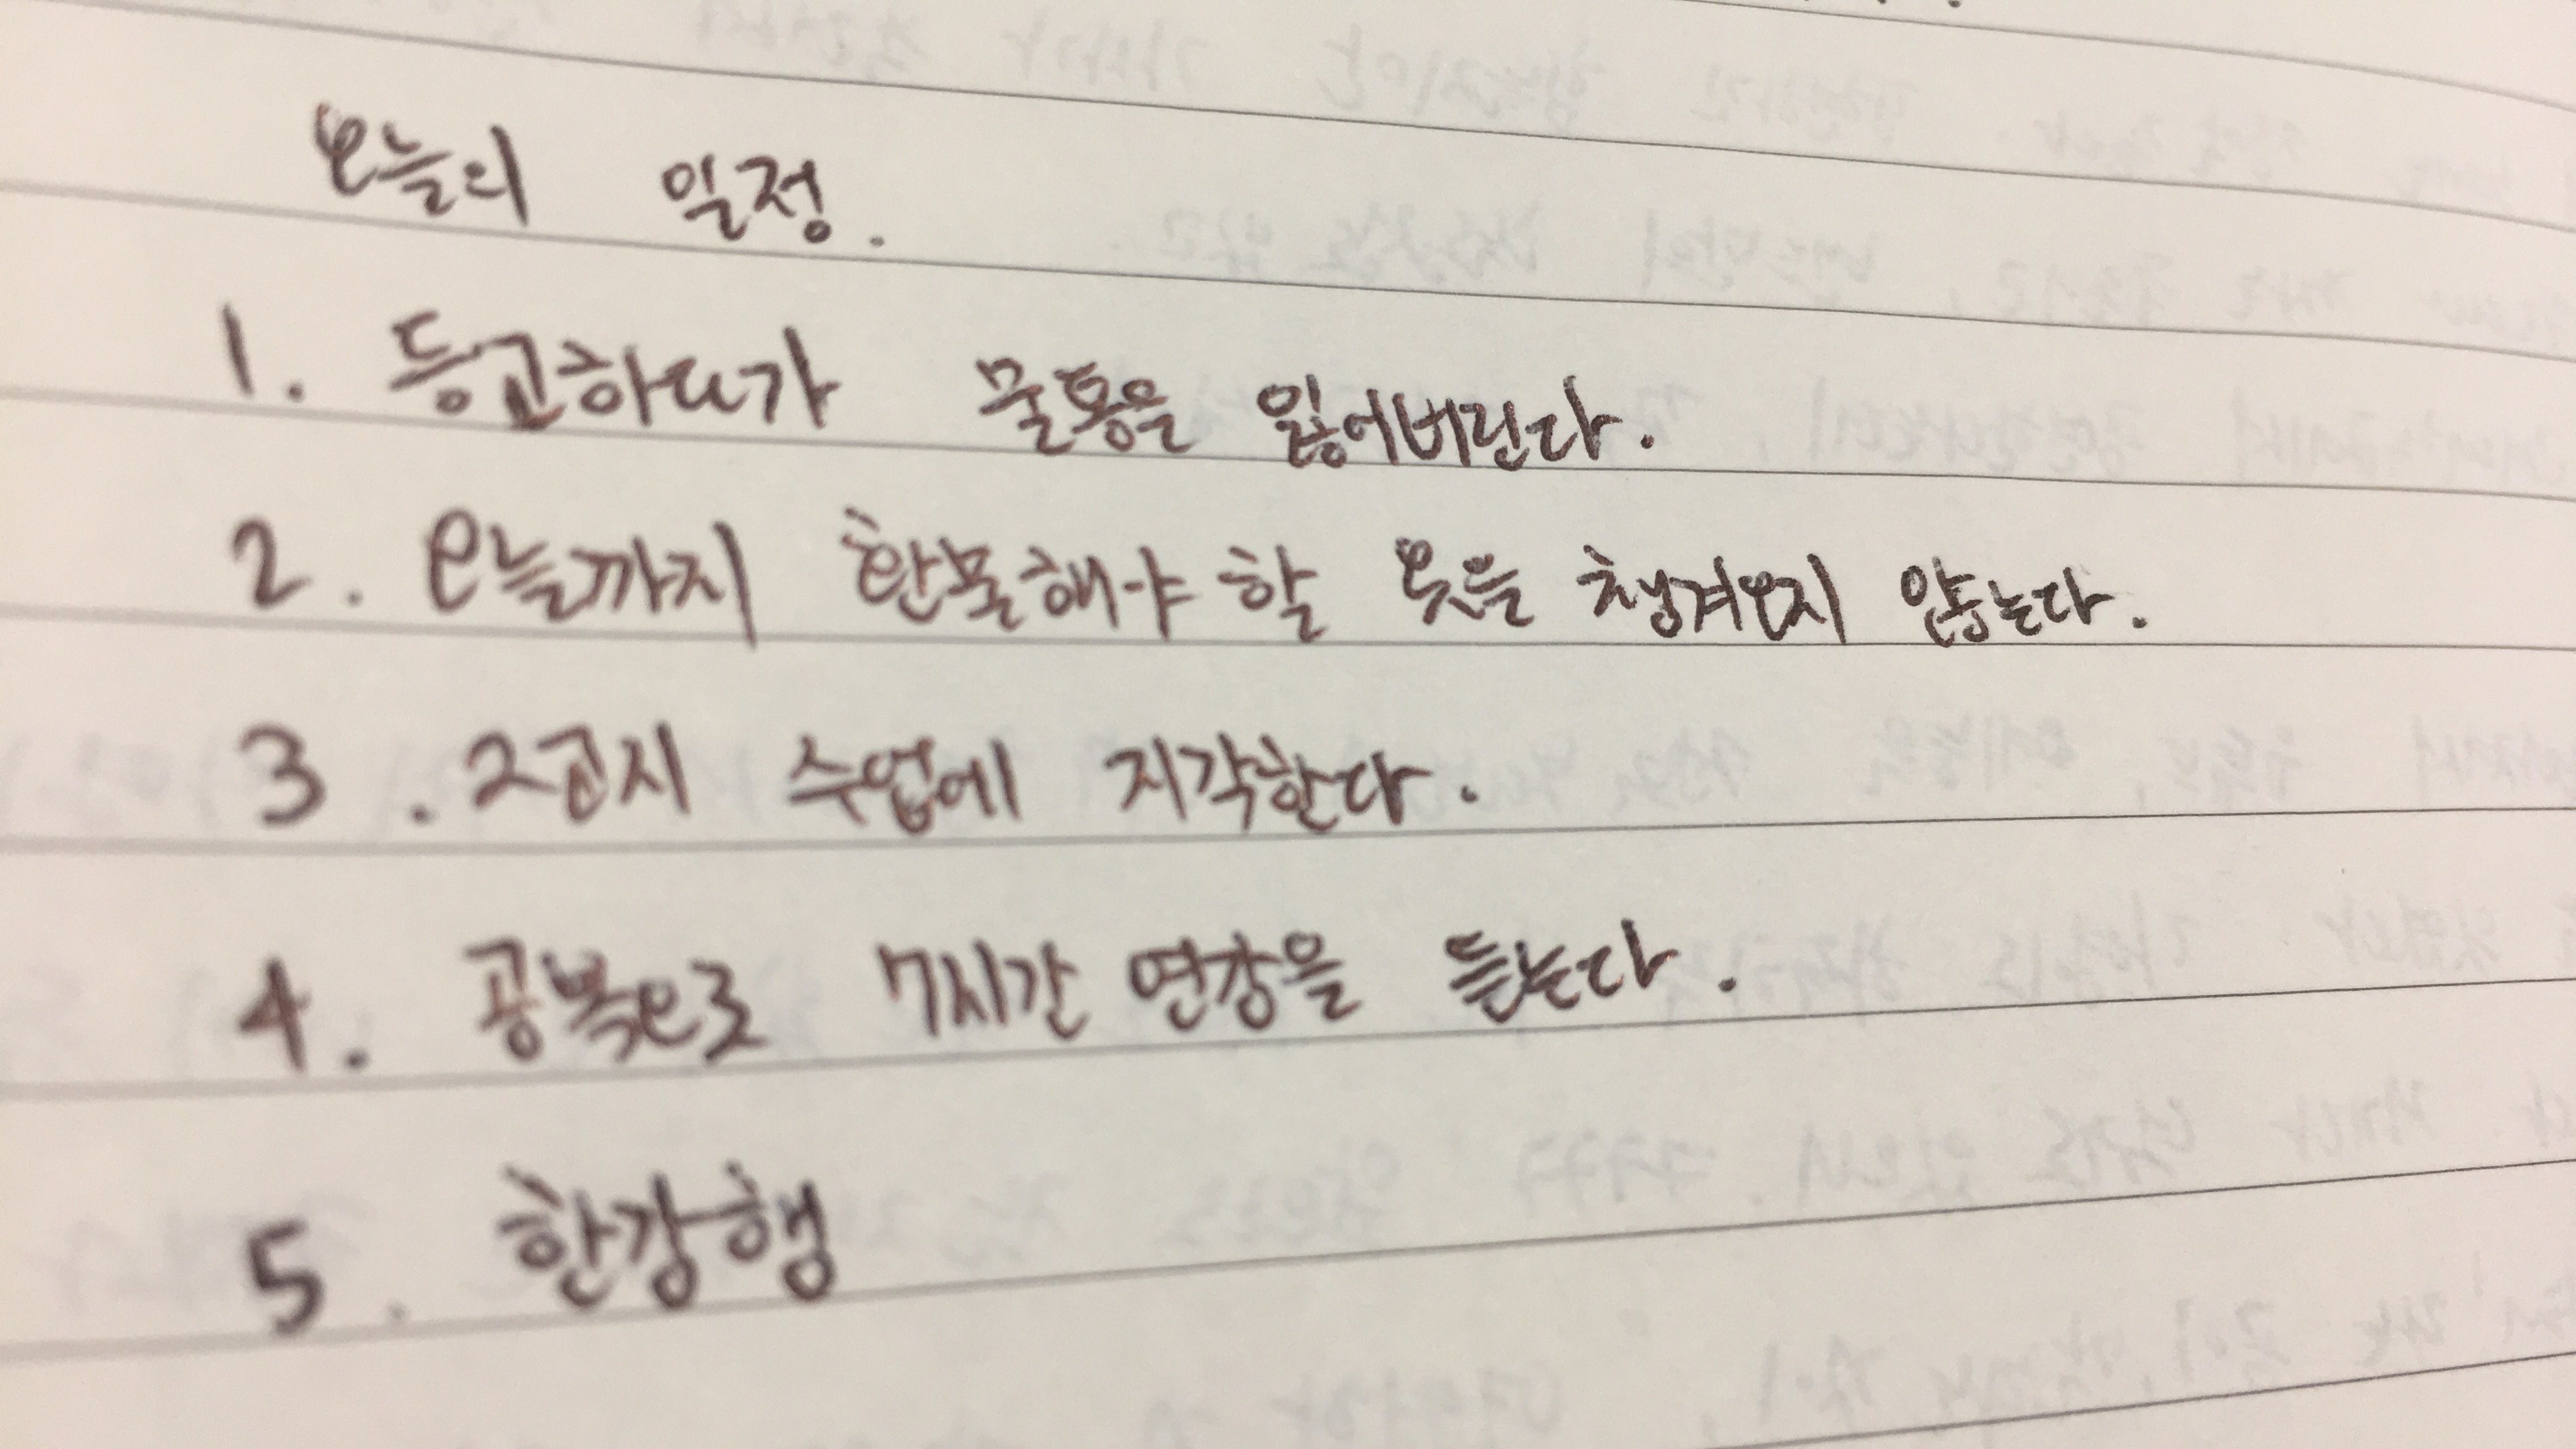 오늘의 일정.
1. 등교하다가 물통을 잃어버린다.
2. 오늘까지 환불해야 할 옷을 챙겨오지 않는다.
3. 2교시 수업에 지각한다.
4. 공복으로 7시간 연강을 듣는다.
5. 한강행